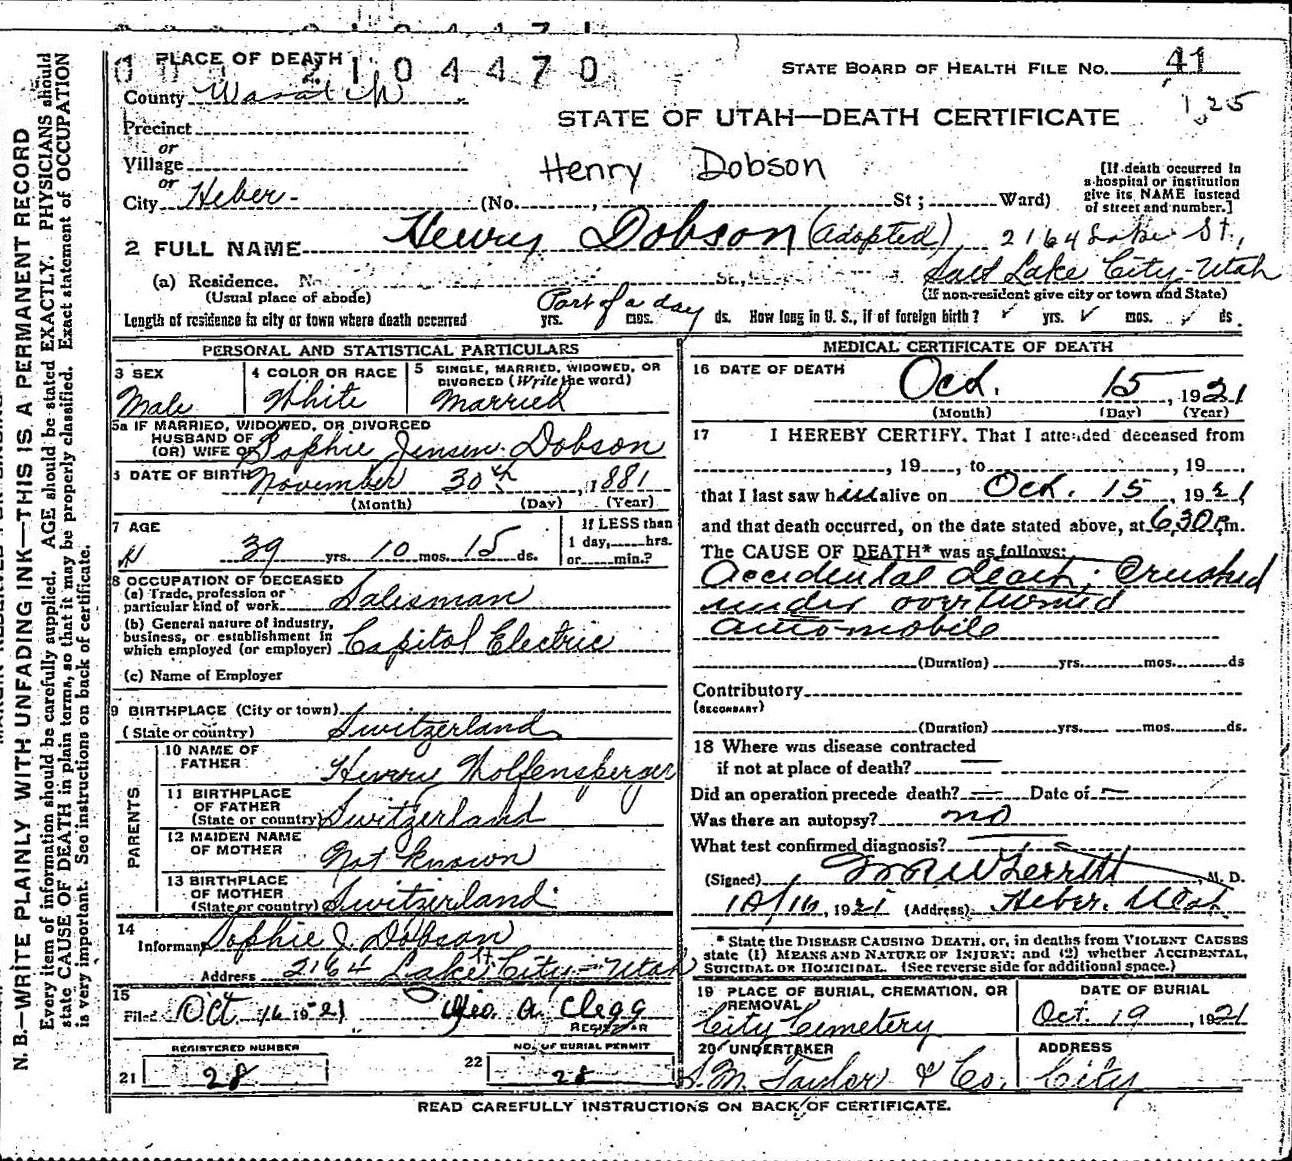 0 0 2104470
PLACE OF DEATH
STATE BOARD OF HEALTH FILE NO. 41
125
County Wasatch
STATE OF UTAH—DEATH CERTIFICATE
Precinct
or
Village
Henry Dobson
[If death occurred in a hospital or institution give its NAME instead of street and number.]
or
City Heber (No. , St; Ward)
2 FULL NAME Henry Dobson (Adopted), 2164 Lake St.,
(a) Residence. No. St., Salt Lake City-Utah
(Usual place of abode) (If non-resident give city or town and State)
Length of residence in city or town where death occurred Part of a day yrs. mos. ds. How long in U. S., if of foreign birth? yrs. mos. ds.
PERSONAL AND STATISTICAL PARTICULARS
3 SEX Male
4 COLOR OR RACE White
5 SINGLE, MARRIED, WIDOWED, OR DIVORCED (Write the word) Married
5a IF MARRIED, WIDOWED, OR DIVORCED
HUSBAND OF
(OR) WIFE OF Sophie Jensen Dobson
6 DATE OF BIRTH November 30th, 1881
(Month) (Day) (Year)
7 AGE 39 yrs. 10 mos. 15 ds.
If LESS than
1 day, hrs.
or min.?
8 OCCUPATION OF DECEASED
(a) Trade, profession or
particular kind of work Salesman
(b) General nature of industry,
business, or establishment in
which employed (or employer) Capitol Electric
(c) Name of Employer
9 BIRTHPLACE (City or town)
(State or country) Switzerland
PARENTS
10 NAME OF FATHER Henry Wolfensperger
11 BIRTHPLACE OF FATHER
(State or country) Switzerland
12 MAIDEN NAME OF MOTHER Not known
13 BIRTHPLACE OF MOTHER
(State or country) Switzerland
14 Informant Sophie J. Dobson
Address 2164 Lake St. City-Utah
15 Filed Oct 16 1921 Geo. A. Clegg
REGISTRAR
REGISTERED NUMBER
21 28
NO. OF BURIAL PERMIT
22 28
MEDICAL CERTIFICATE OF DEATH
16 DATE OF DEATH
Oct. 15, 1921
(Month) (Day) (Year)
17 I HEREBY CERTIFY, That I attended deceased from
, 19 , to , 19 ,
that I last saw him alive on Oct. 15, 1921
and that death occurred, on the date stated above, at 6:30 P.m.
The CAUSE OF DEATH* was as follows:
Accidental death; Crushed
under overturned
automobile
(Duration) yrs. mos. ds
Contributory
(SECONDARY)
(Duration) yrs. mos. ds.
18 Where was disease contracted
if not at place of death? —
Did an operation precede death? — Date of —
Was there an autopsy? no
What test confirmed diagnosis?
(Signed) , M. D.
10/16, 1921 (Address) Heber, Utah
* State the DISEASE CAUSING DEATH, or, in deaths from VIOLENT CAUSES
state (1) MEANS AND NATURE OF INJURY; and (2) whether ACCIDENTAL,
SUICIDAL OR HOMICIDAL. (See reverse side for additional space.)
19 PLACE OF BURIAL, CREMATION, OR REMOVAL
City Cemetery
DATE OF BURIAL
Oct. 19, 1921
20 UNDERTAKER
S.M. Taylor & Co.
ADDRESS
City
READ CAREFULLY INSTRUCTIONS ON BACK OF CERTIFICATE.
N. B.—WRITE PLAINLY WITH UNFADING INK—THIS IS A PERMANENT RECORD
Every item of information should be carefully supplied. AGE should be stated EXACTLY. PHYSICIANS should
state CAUSE OF DEATH in plain terms, so that it may be properly classified. Exact statement of OCCUPATION
is very important. See instructions on back of certificate.